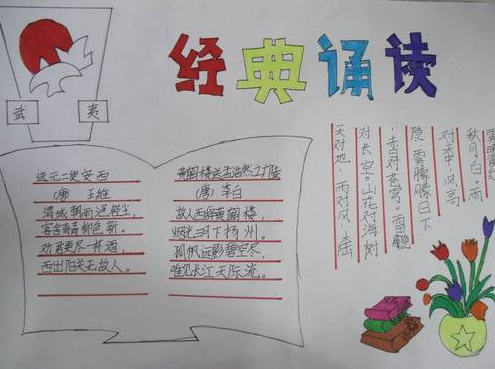 经典诵读
武 夷
送元二使安西
(唐) 王维
渭城朝雨浥轻尘,
客舍青青柳色新。
劝君更尽一杯酒,
西出阳关无故人。
黄鹤楼送孟浩然之广陵
(唐)李白
故人西辞黄鹤楼,
烟花三月下扬州。
孤帆远影碧空尽,
唯见长江天际流。
天对地,雨对风。
对长空。山花对海树
,赤日对苍穹。雷隐
隐,雾朦朦。日下
对天中。风高
秋月白。雨